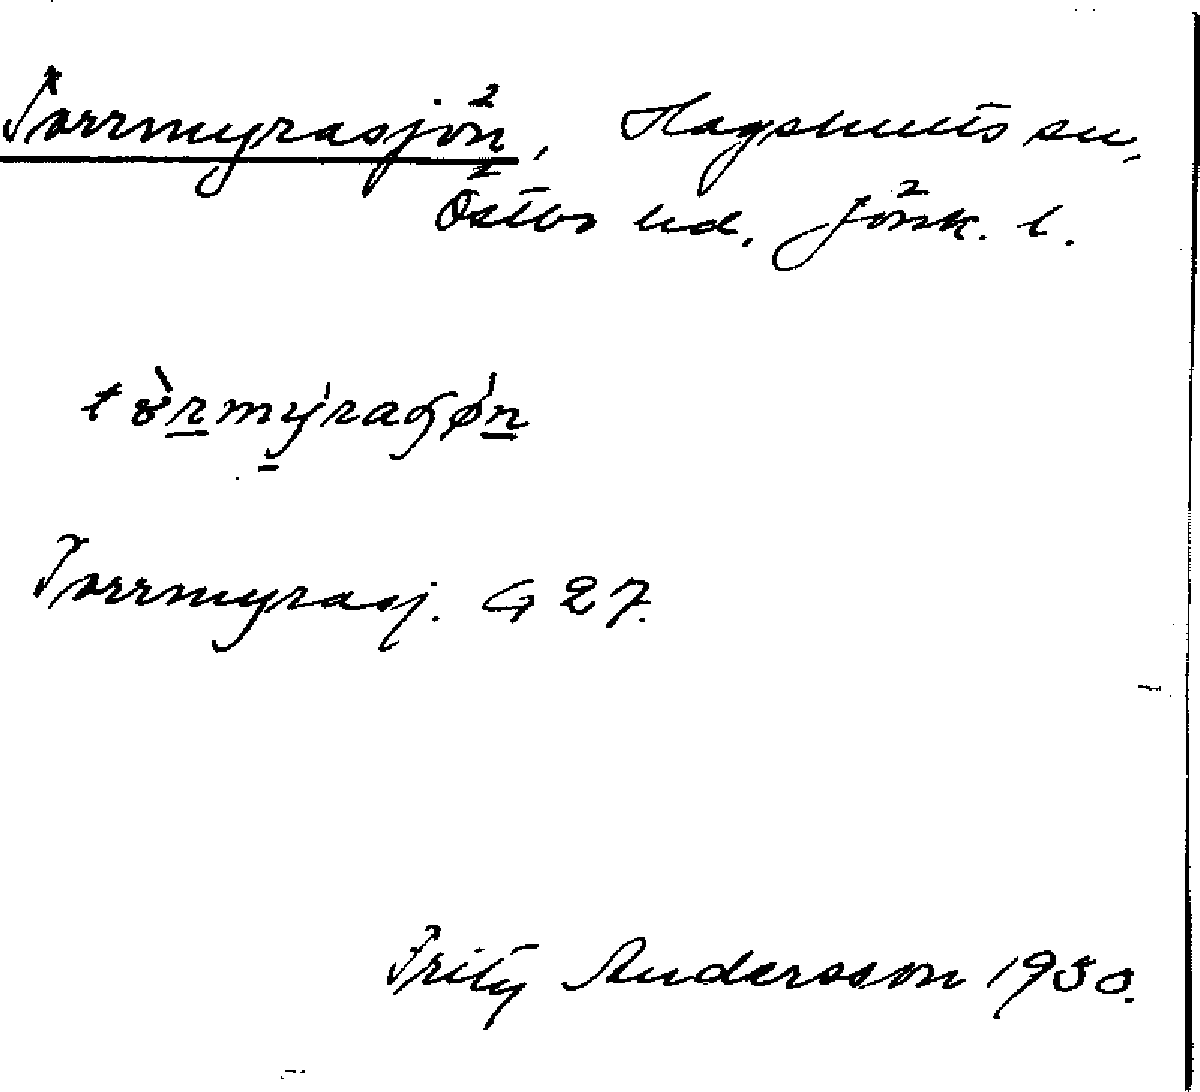 Torrmyrasjön, Hagshults sn,
Östbo hd, Jönk. l.
Torrmyrasj. G 27.
Fritz Andersson 1930.